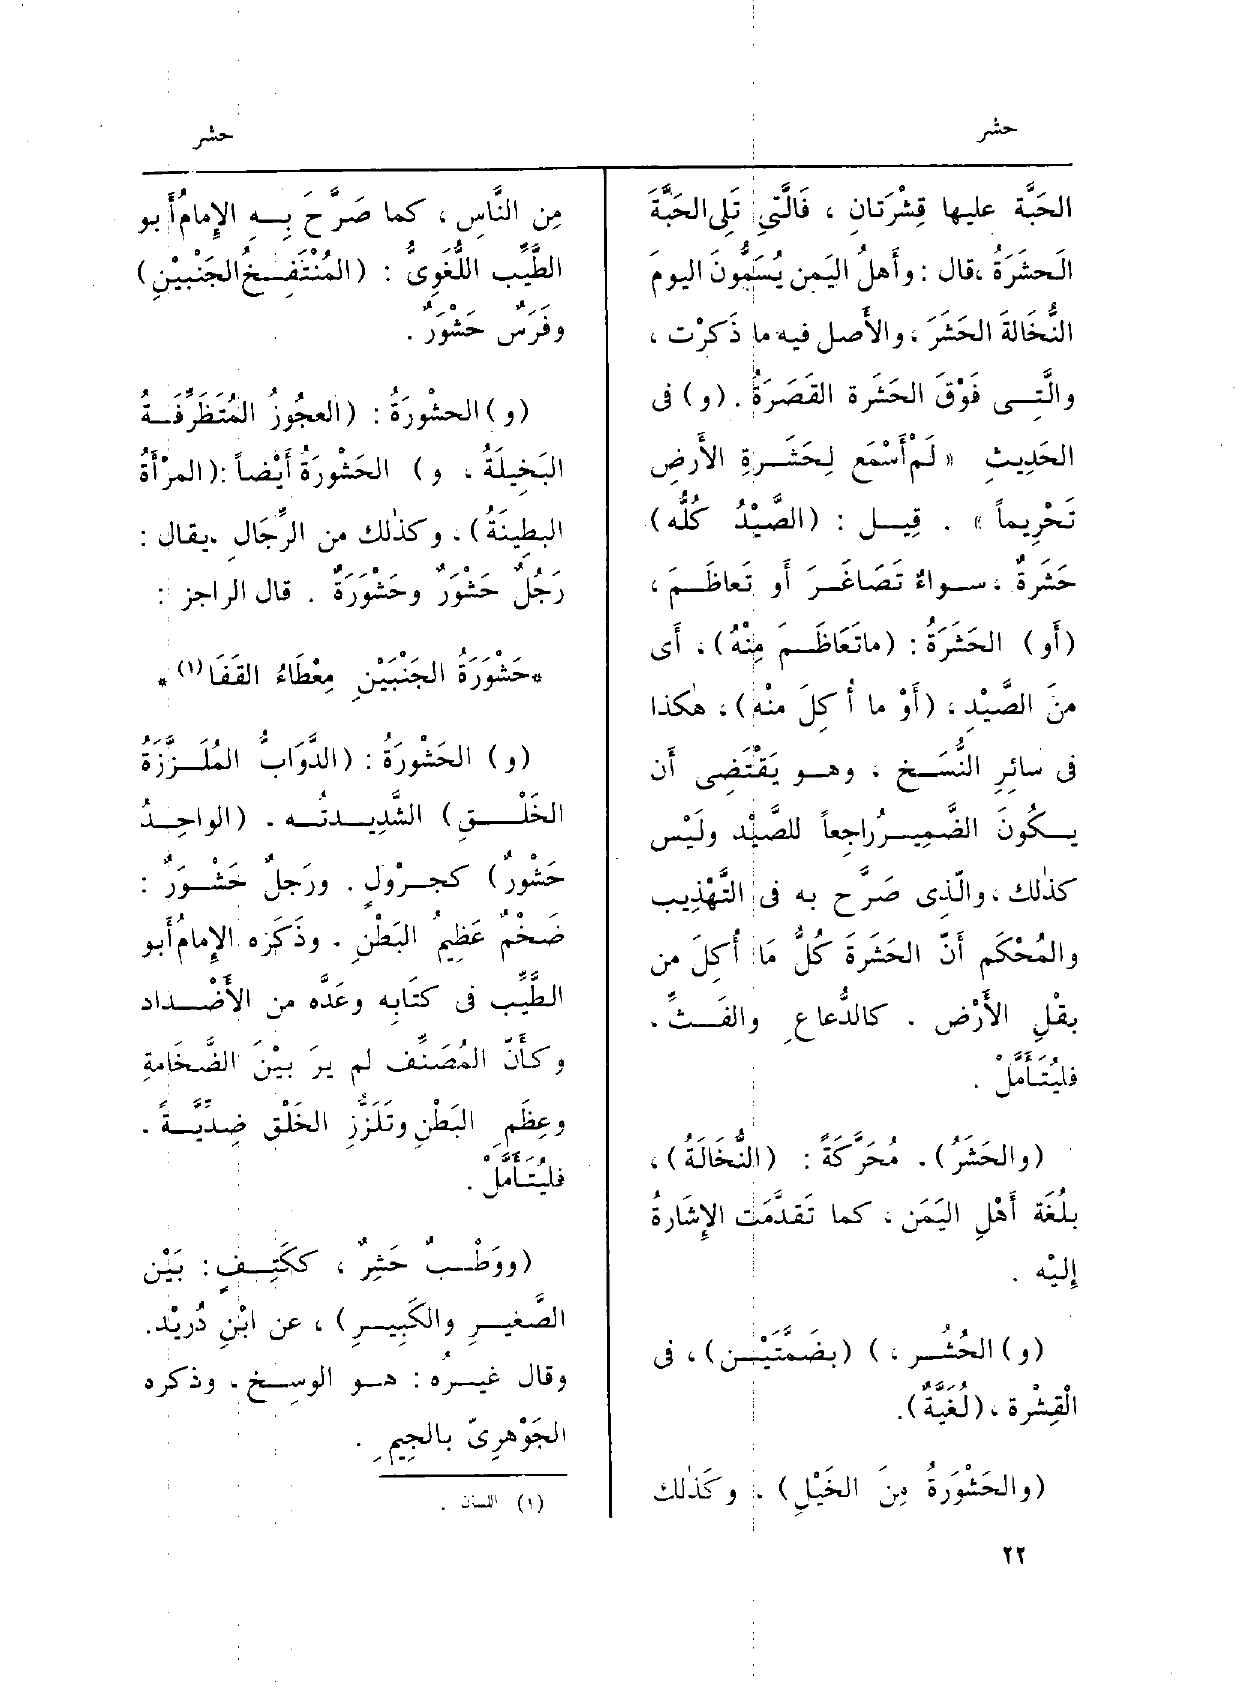 حشر
حشر
الحَبَّة عليها قِشْرَتانِ ، فَالَّتِي تَلِى الحَبَّةَ
الَحشَرَةُ ،قال :وأَهلُ اليَمنِ يُسَمُّونَ اليومَ
النُّخَالةَ الحَشَرَ ، والأَصل فيه ما ذَكَرْت ،
والَّتِــى فَوْقَ الحَشَرة القَصَرَةُ . (و) فى
الحَدِيثِ « لَم أَسْمَع لِحَشَـرةِ الأَرضِ
تَحْرِيماً » . قِيـل : (الصَّيْدُ كُلُّه)
حَشَرةٌ ، سـواءٌ تَصَاغَـرَ أو تَعاظَـمَ ،
(أَو) الحَشَرَةُ : (ماتَعَاظَـمَ مِنْهُ) ، أَى
منَ الصَّيْدِ ، (أَوْ ما أُكِلَ منْه) ، هٰكذا
فى سائِرِ النُّسَـخ ، وهـو يَقْتَضِى أَن
يـكُونَ الضَّمِيـرُ راجِعاً للصَّيْد ولَيْس
كذٰلك ، والَّذِى صَرَّح به فى التَّهْذِيب
والمُحْكَمِ أَنّ الحَشَرَةَ كُلُّ مَا أُكِلَ من
بقْلِ الأَرْضِ . كالدُّعاعِ والفَـثِّ .
فليُتَأَمَّلْ .
(والحَشَرُ) . مُحَرَّكَةً : (النُّخَالَةُ) ،
بلُغَة أَهْلِ اليَمَن ، كما تَقدَّمَت الإِشَارةُ
إِليْه .
(و) الحُشُـر ، ) (بضَمَّتَيْـن) ، فى
الْقِشْرة ، (لُغَيَّةٌ) .
(والحَشْوَرةُ مِنَ الخَيْلِ) . وكَذٰلك
مِن النَّاسِ ، كما صَرَّحَ بِـهِ الإِمامُ أَبو
الطَّيِّب اللُّغَوِىُّ : (المُنْتَفِـخُ الجَنْبيْنِ)
وفَرَسٌ حَشْوَرٌ .
(و) الحشْورَةُ : (العجُوزُ المُتَظَرِّفَـةُ
البَخِيلَةُ ، و) الحَشْوَرَةُ أَيْضاً :(المرْأَةُ
البطِينَةُ) ، وكذٰلك من الرِّجَالِ ،يقال :
رَجُلٌ حَشْوَرٌ وحَشْوَرَةٌ . قال الراجز :
* حَشْوَرَةُ الجَنْبَيْنِ مِعْطَاءُ القَفَا (١) *
(و) الحَشْورَةُ : (الدَّوَابُّ المُلَـزَّزَةُ
الخَلْـقِ) الشَّدِيـدتُـه . (الواحِـدُ
حَشْورٌ) كجـرْولٍ . ورَجلٌ حَشْـوَرٌ :
ضَخْمٌ عَظِيمُ البَطْنِ . وذَكَره الإِمامُ أَبو
الطَّيِّب فى كتَابِه وعَدَّه من الأَضْـداد
وكأَنّ المُصَنِّف لم يرَ بيْنَ الضَّخَامةِ
وعِظَمِ البَطْنِ وتَلَزُّزِ الخَلْقِ ضِدِّيَّـةً .
فليُتَأَمَّلْ .
(ووَطْـبٌ حَشِرٌ ، ككَتِـفٍ : بَيْن
الصَّغيـرِ والكَبِيـرِ) ، عن ابْنِ دُرَيْد.
وقال غيـرُه : هـو الوسِـخ ، وذكره
الجَوْهرِىّ بالجِيمِ .
(١) اللسان .
٢٢